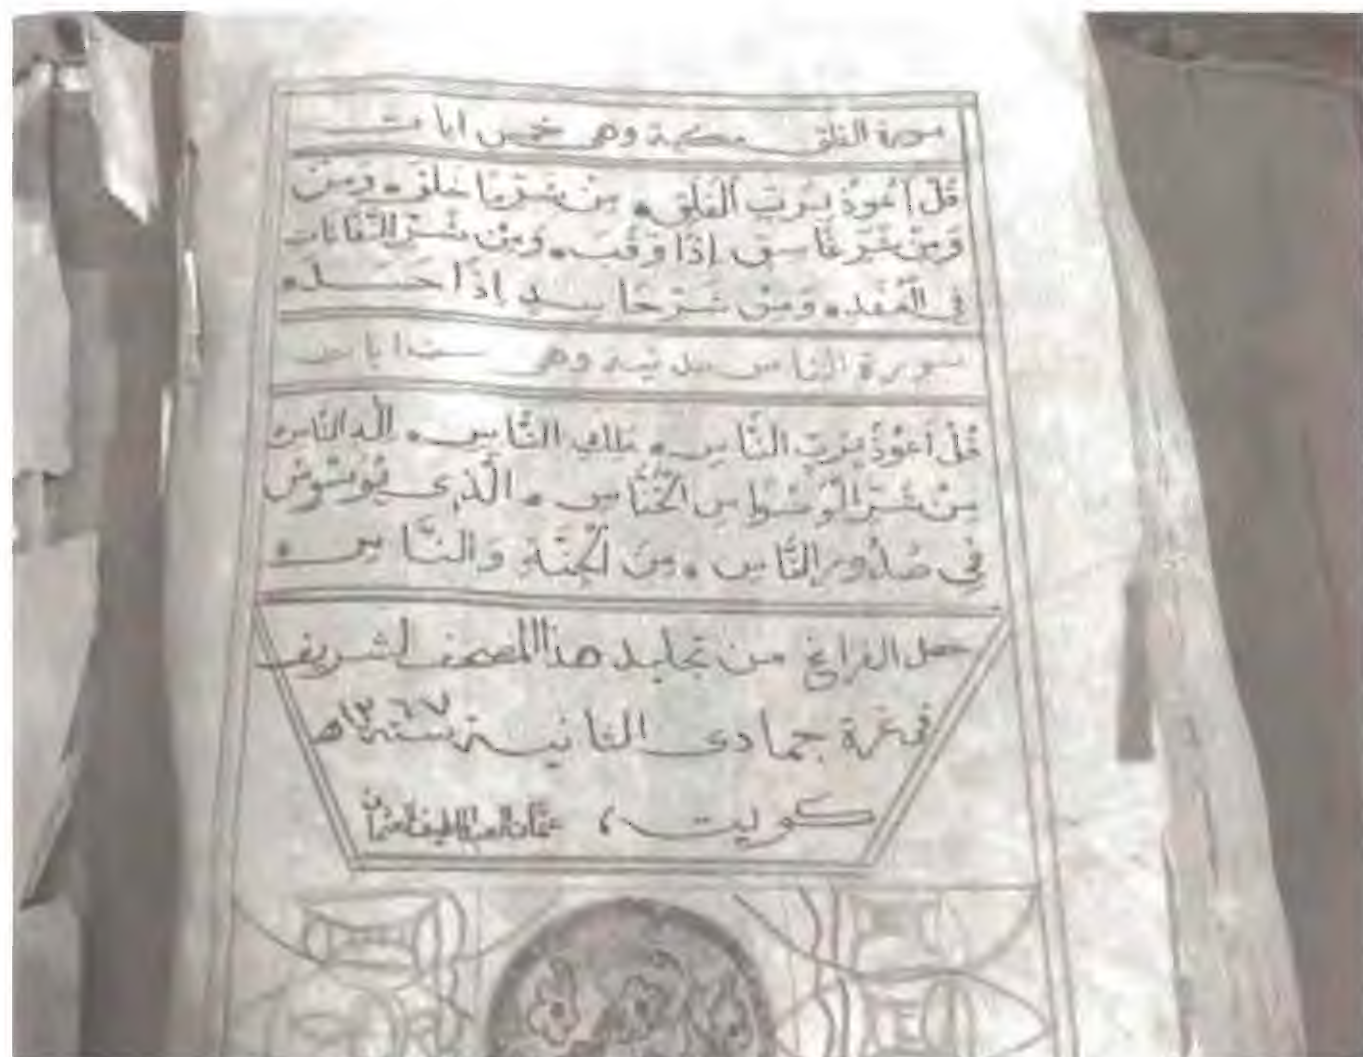 سورة الفلق مكية وهي خمس ايات
قُلْ أَعُوذُ بِرَبِّ الْفَلَقِ • مِنْ شَرِّ مَا خَلَقَ • وَمِنْ
وَمِنْ شَرِّ غَاسِقٍ إِذَا وَقَبَ • وَمِنْ شَرِّ النَّفَّاثَاتِ
فِي الْعُقَدِ • وَمِنْ شَرِّ حَاسِدٍ إِذَا حَسَدَ •
سورة الناس مدنية وهي ست ايات
قُلْ أَعُوذُ بِرَبِّ النَّاسِ • مَلِكِ النَّاسِ • إِلَهِ النَّاسِ
مِنْ شَرِّ الْوَسْوَاسِ الْخَنَّاسِ • الَّذِي يُوَسْوِسُ
فِي صُدُورِ النَّاسِ • مِنَ الْجِنَّةِ وَالنَّاسِ •
حصل الفراغ من تجليد هذا المصحف لشريف
في غرة جمادى الثانية سنة ١٣٦٧ھ
كويت، عثمان عبد اللطيف العثمان